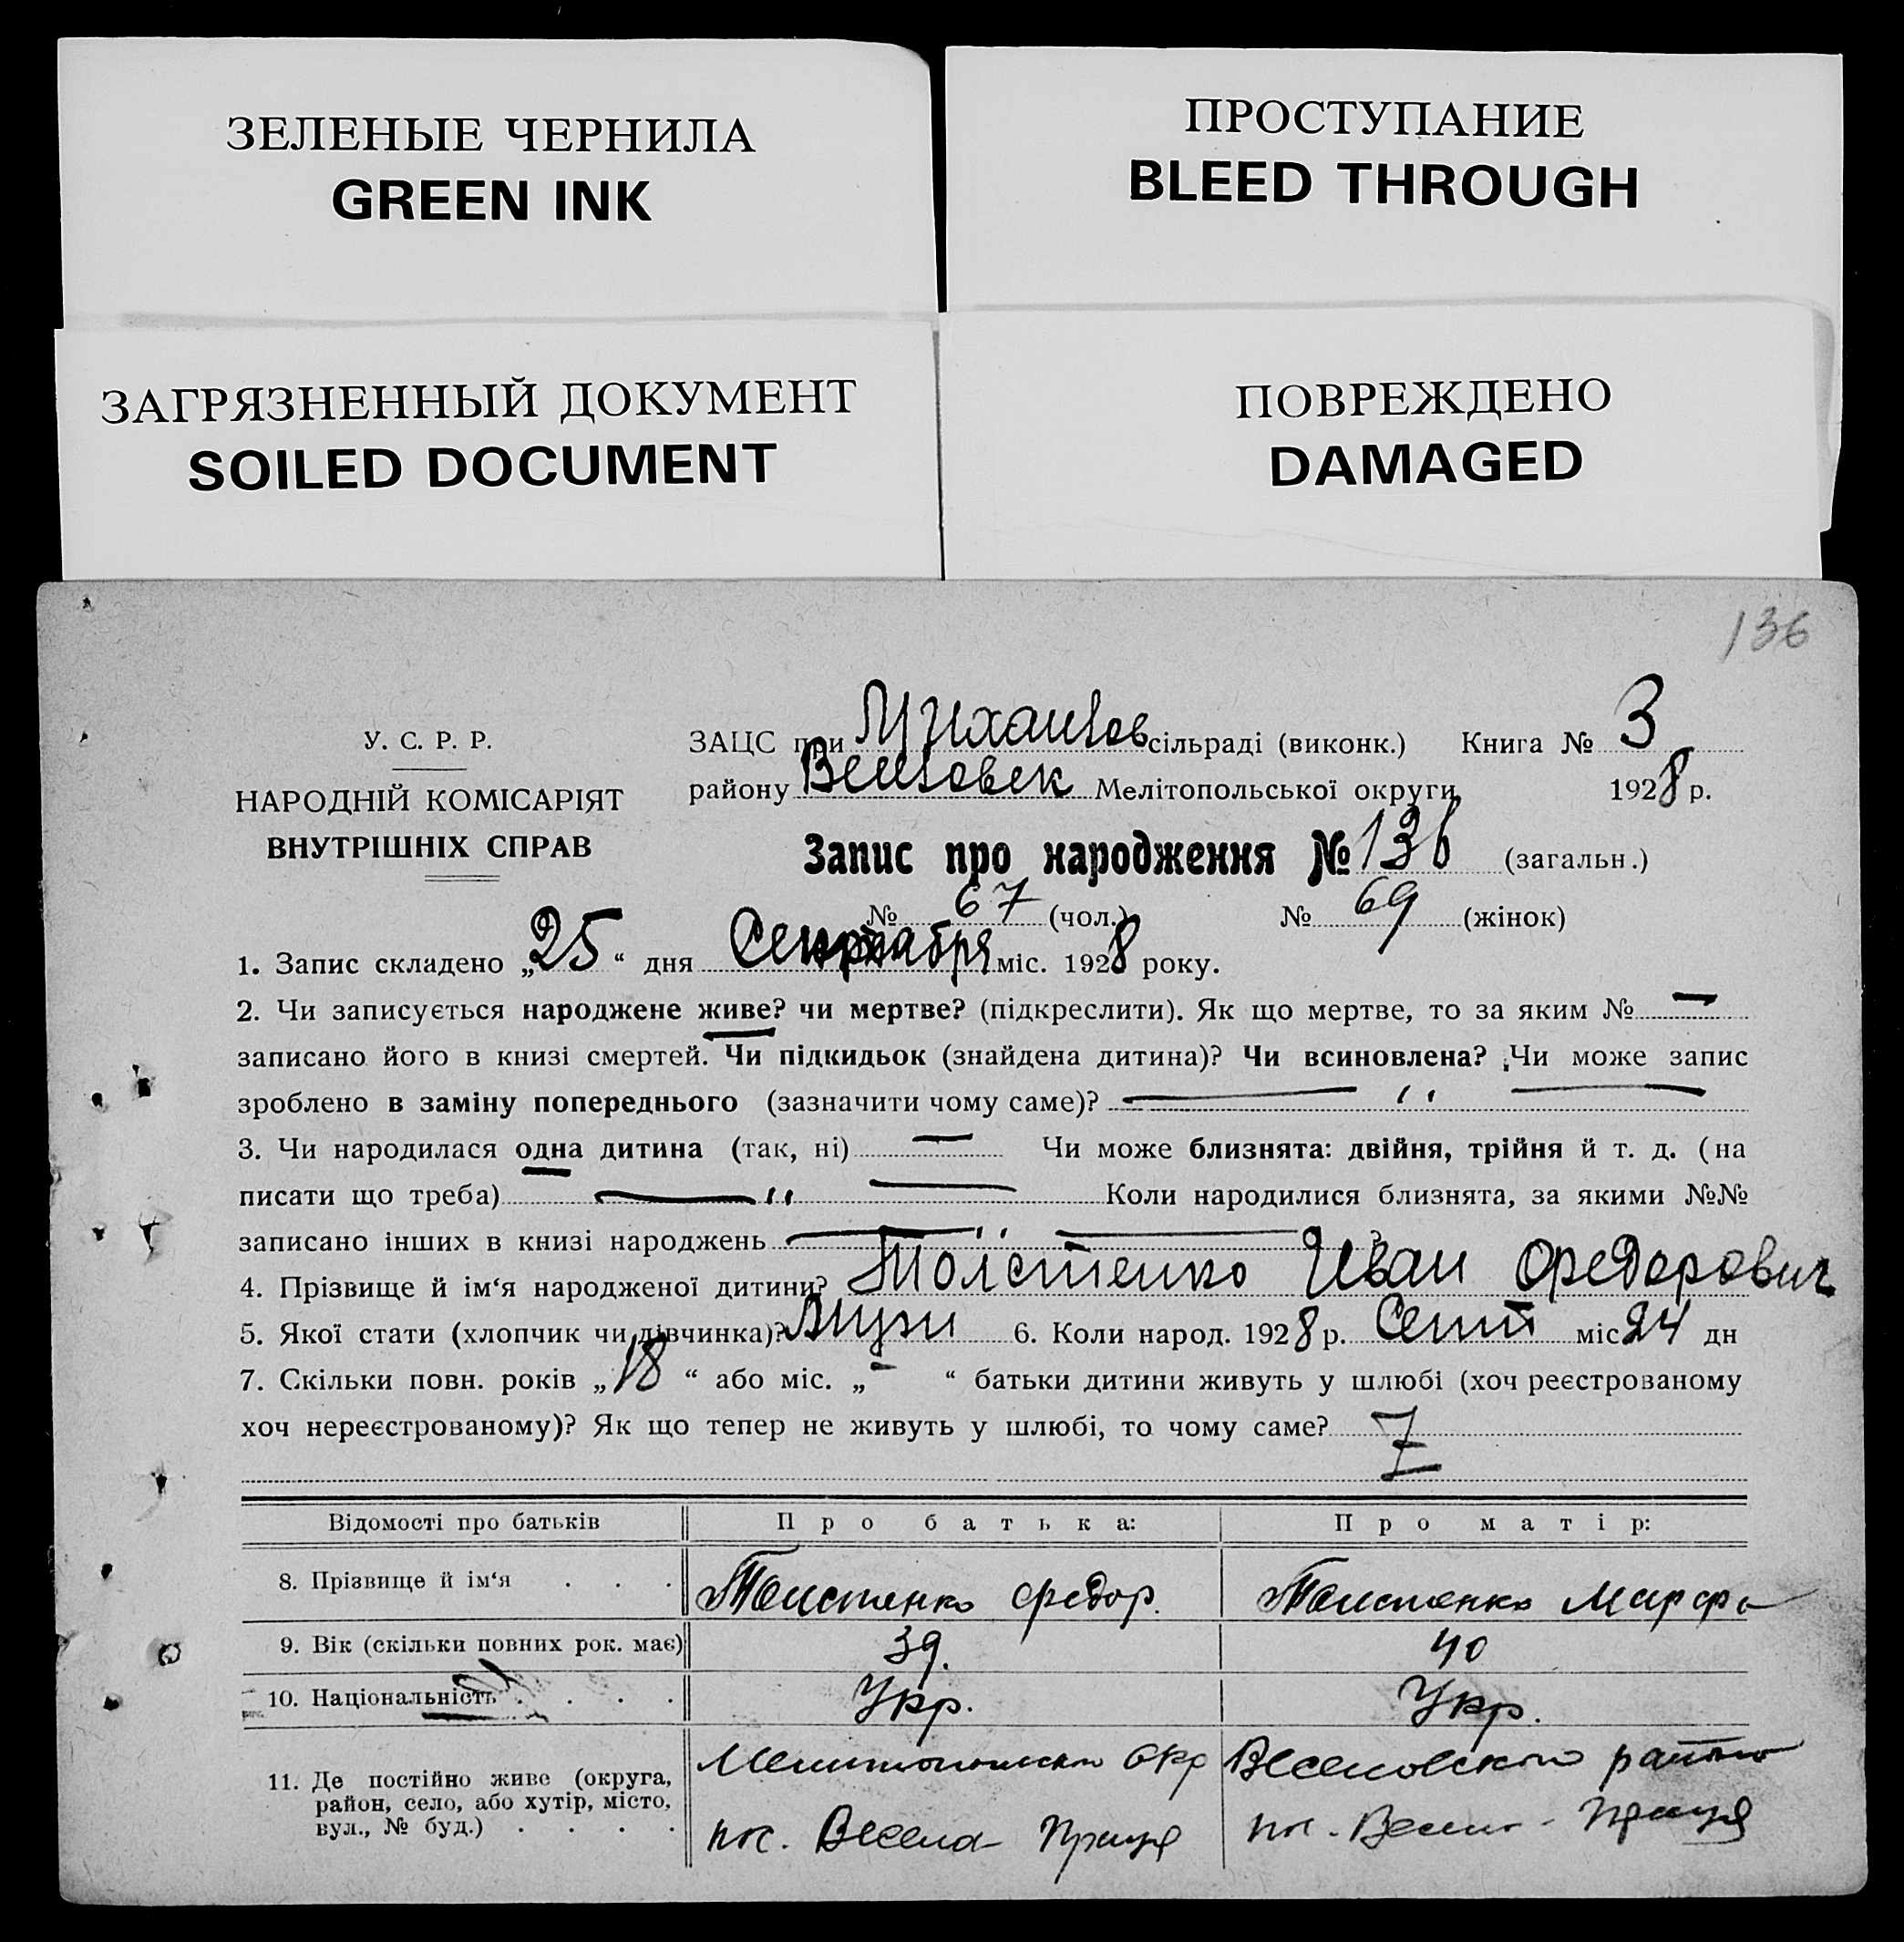 ЗЕЛЕНЫЕ ЧЕРНИЛА
GREEN INK
ПРОСТУПАНИЕ
BLEED THROUGH
ЗАГРЯЗНЕННЫЙ ДОКУМЕНТ
SOILED DOCUMENT
ПОВРЕЖДЕНО
DAMAGED
136
У. С. Р. Р.
НАРОДНІЙ КОМІСАРІЯТ
ВНУТРІШНІХ СПРАВ
ЗАЦС при Михайлов сільраді (виконк.) Книга № 3
району Мелітопольської округи 1928 р.
Запис про народження № 136 (загальн.)
№ 67 (чол.) № 69 (жінок)
1. Запис складено „25“ дня Сентября міс. 1928 року.
2. Чи записується народжене живе? чи мертве? (підкреслити). Як що мертве, то за яким № —
записано його в книзі смертей. Чи підкидьок (знайдена дитина)? Чи всиновлена? Чи може запис
зроблено в заміну попереднього (зазначити чому саме)? — " —
3. Чи народилася одна дитина (так, ні) — Чи може близнята: двійня, трійня й т. д. (на
писати що треба) — " — Коли народилися близнята, за якими №№
записано інших в книзі народжень — " —
4. Прізвище й ім‘я народженої дитини? Толстенко Иван Федорович
5. Якої стати (хлопчик чи дівчинка)? Муж 6. Коли народ. 1928 р. Сент міс 24 дн
7. Скільки повн. років „18“ або міс. „–“ батьки дитини живуть у шлюбі (хоч реєстрованому
хоч нереєстрованому)? Як що тепер не живуть у шлюбі, то чому саме?
Відомості про батьків П р о б а т ь к а: П р о м а т і р:
8. Прізвище й ім‘я . . . Толстенко Федор. Толстенко Марфа
9. Вік (скільки повних рок. має) 39. 40
10. Національність . . . . Укр. Укр.
11. Де постійно живе (округа,
район, село, або хутір, місто,
вул., № буд.) . . . .
Мелитопольськ Окр Веселовского району
пос. Весела Праця пос. Весела Праця